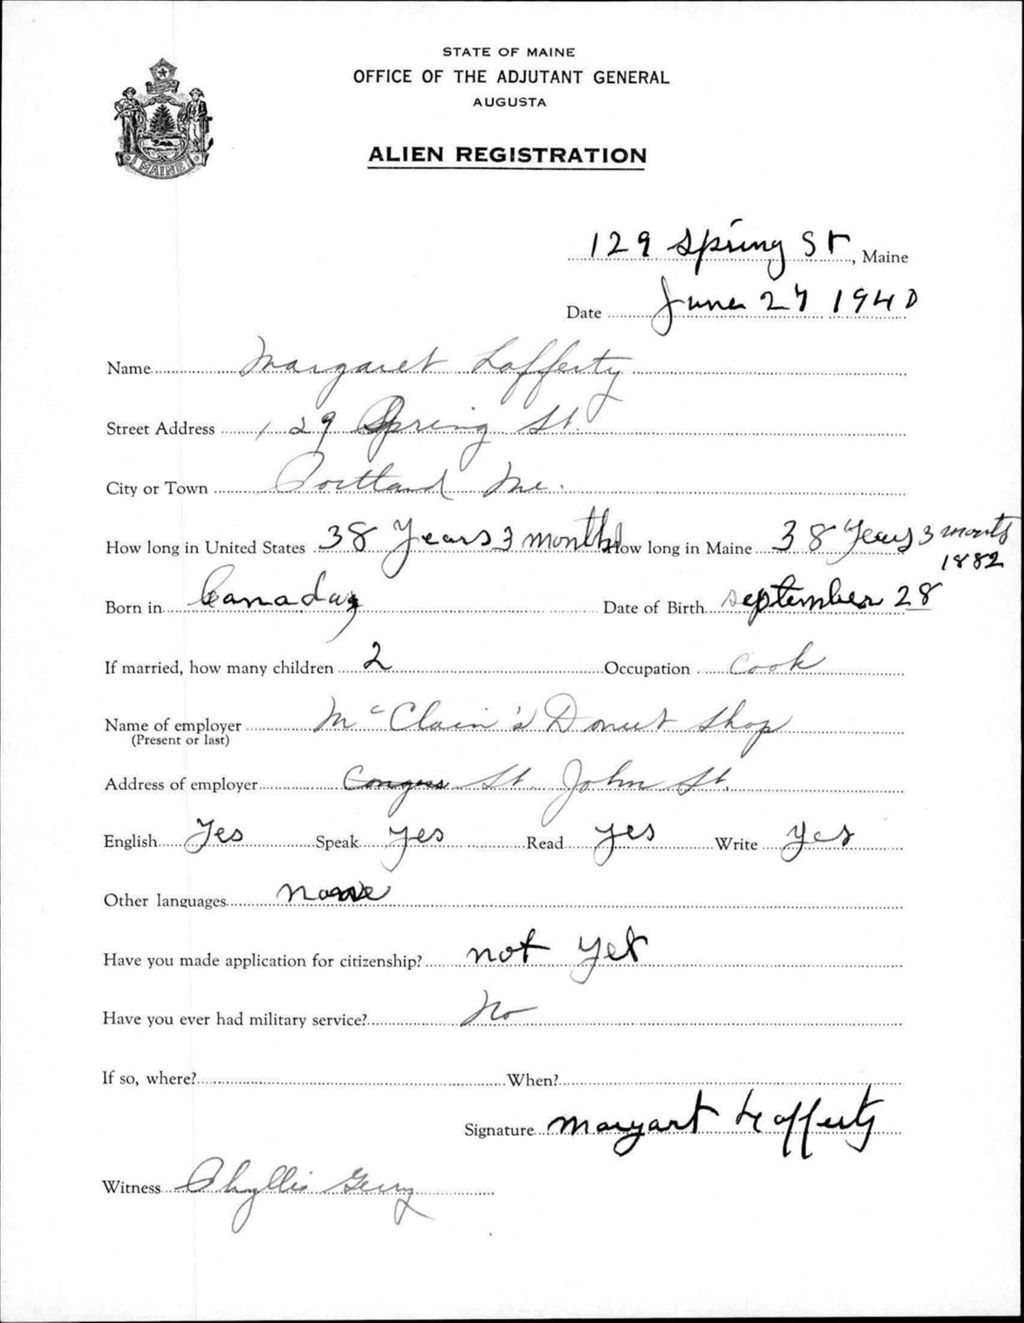 STATE OF MAINE
OFFICE OF THE ADJUTANT GENERAL
AUGUSTA
ALIEN REGISTRATION
MAINE
129 Spring St, Maine
Date June 27 1940
Name Margaret Lafferty
Street Address 129 Spring St.
City or Town Portland Me.
How long in United States 38 Years 3 months How long in Maine 38 Years 3 months
1882
Born in Canada Date of Birth september 28
If married, how many children 2 Occupation Cook
Name of employer McClain's Donut Shop
(Present or last)
Address of employer Congress St. John St.
English Yes Speak yes Read yes Write yes
Other languages None
Have you made application for citizenship? not yet
Have you ever had military service? No
If so, where? When?
Signature Margart Lafferty
Witness Phyllis Gerry